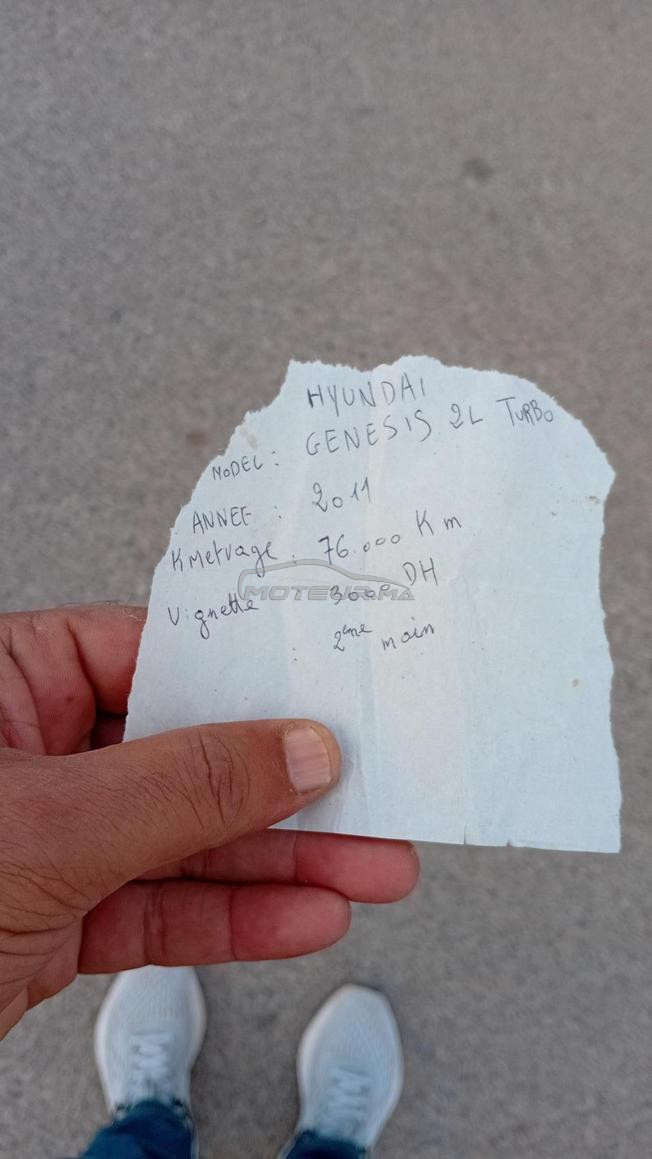 HYUNDAI
MODEL : GENESIS 2L TURBO
ANNEE : 2011
Kmetrage : 76.000 Km
Vignette 3000 DH
MOTEUR.MA
2ème main